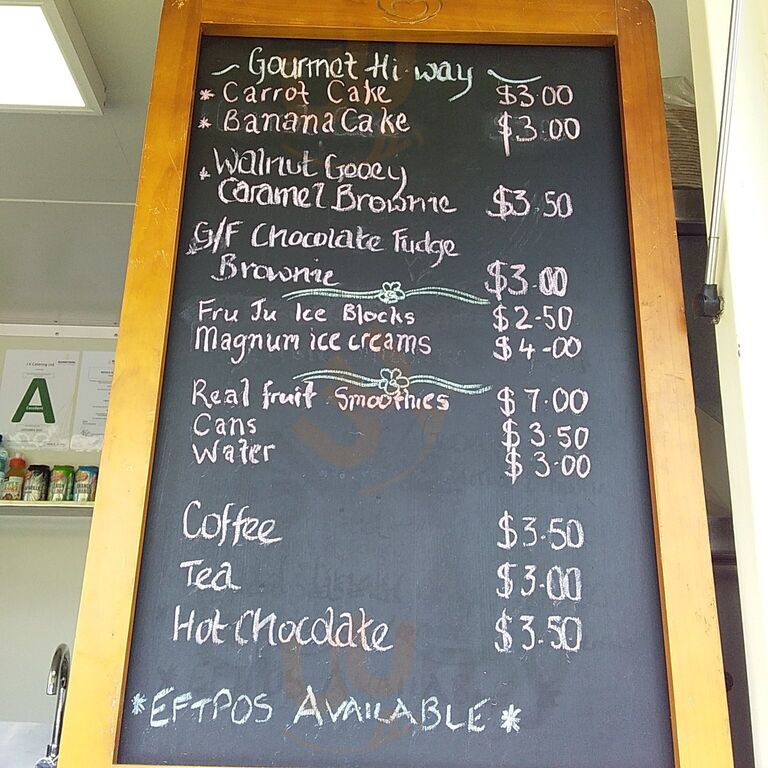 ~ Gourmet Hi-way ~
* Carrot Cake $3.00
* Banana Cake $3.00
* Walnut Gooey
Caramel Brownie $3.50
* G/F Chocolate Fudge
Brownie $3.00
Fru Ju Ice Blocks $2-50
Magnum ice creams $4-00
Real fruit Smoothies $7.00
Cans $3.50
Water $3.00
Coffee $3.50
Tea $3.00
Hot Chocolate $3.50
*EFTPOS AVAILABLE*
A
Excellent